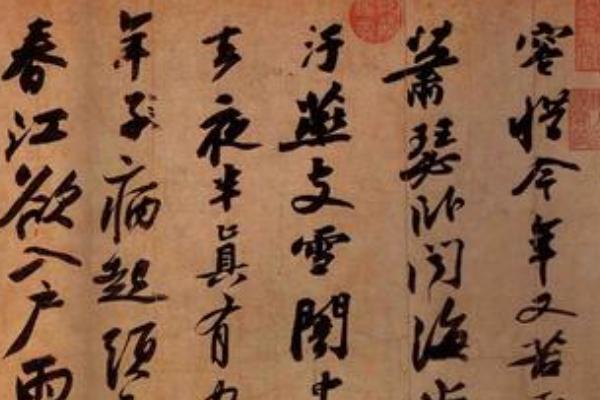 容惜今年又苦
蕭瑟卧聞海
汙燕支雪闇中
去夜半真有
年子病起須
春江欲入戶雨